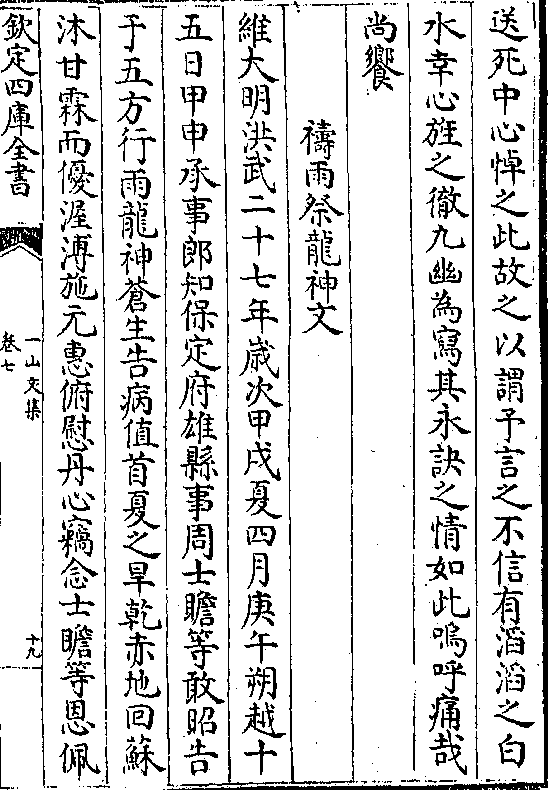 送死中心悼之此故之以謂予言之不信有滔滔之白
水幸心旌之徹九幽為寫其永訣之情如此嗚呼痛哉
尚饗
禱雨祭龍神文
維大明洪武二十七年歲次甲戌夏四月庚午朔越十
五日甲申承事郎知保定府雄縣事周士瞻等敢昭告
于五方行雨龍神蒼生告病值首夏之旱乾赤地回蘇
沐甘霖而優渥溥施元惠俯慰丹心竊念士瞻等恩佩
欽定四庫全書
一山文集
卷七
十九